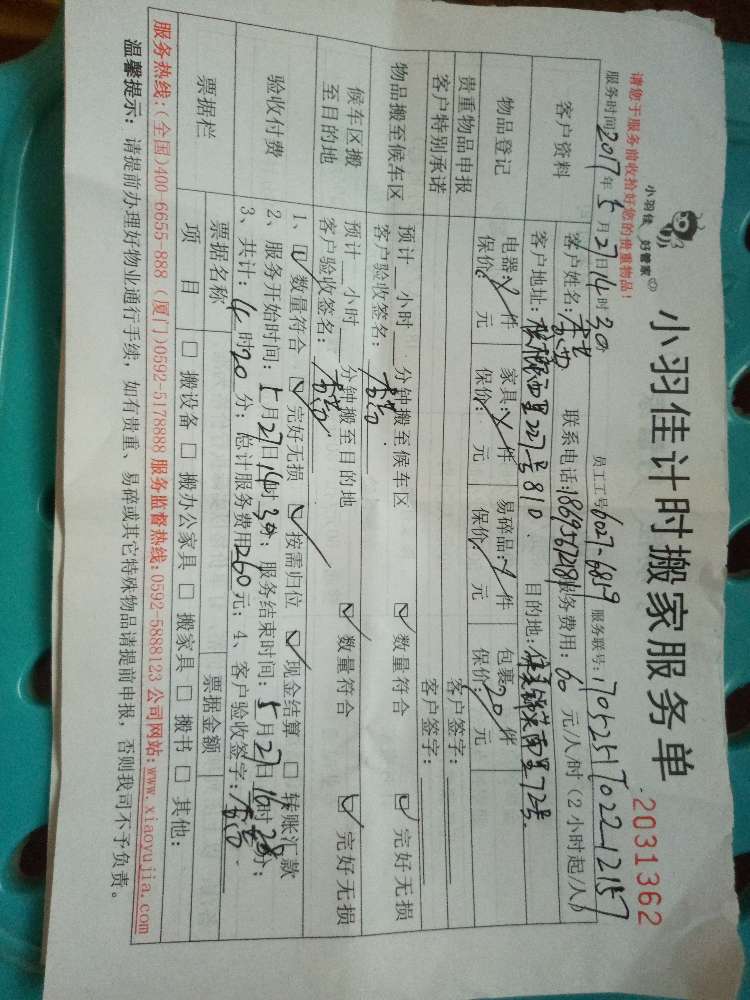 小羽佳计时搬家服务单
2031362
小羽佳 好管家
请您于服务前收拾好您的贵重物品!
服务时间2017年5月27日14时30分 员工工号6027-6859 服务联号:
客户资料 客户姓名: 联系电话: 服务费用:60元/人/时(2小时起/人)
客户地址: 西里227号810 目的地: 南里72号
物品登记 电器: 件 家具: 件 易碎品: 件 包裹20件
保价: 元 保价: 元 保价: 元 保价: 元
贵重物品申报 客户签字:
客户特别承诺 客户签字:
物品搬至候车区 预计 小时 分钟搬至候车区 ☑数量符合 ☑完好无损
客户验收签名:
候车区搬至目的地 预计 小时 分钟搬至目的地 ☑数量符合 ☑完好无损
客户验收签名:
验收付费 1、☑数量符合 ☑完好无损 ☑按需归位 ☑现金结算 □转账汇款
2、服务开始时间:5月27日14时3分; 服务结束时间:5月27日16时28分;
3、共计:4时20分;总计服务费用260元;4、客户验收签字:
票据栏 票据名称 票据金额
项目 □搬设备 □搬办公家具 □搬家具 □搬书 □其他:
服务热线:(全国)400-6655-888 (厦门)0592-5178888 服务监督热线:0592-5888123 公司网站:www.xiaoyujia.com
温馨提示:请提前办理好物业通行手续,如有贵重、易碎或其它特殊物品请提前申报,否则我司不予负责。